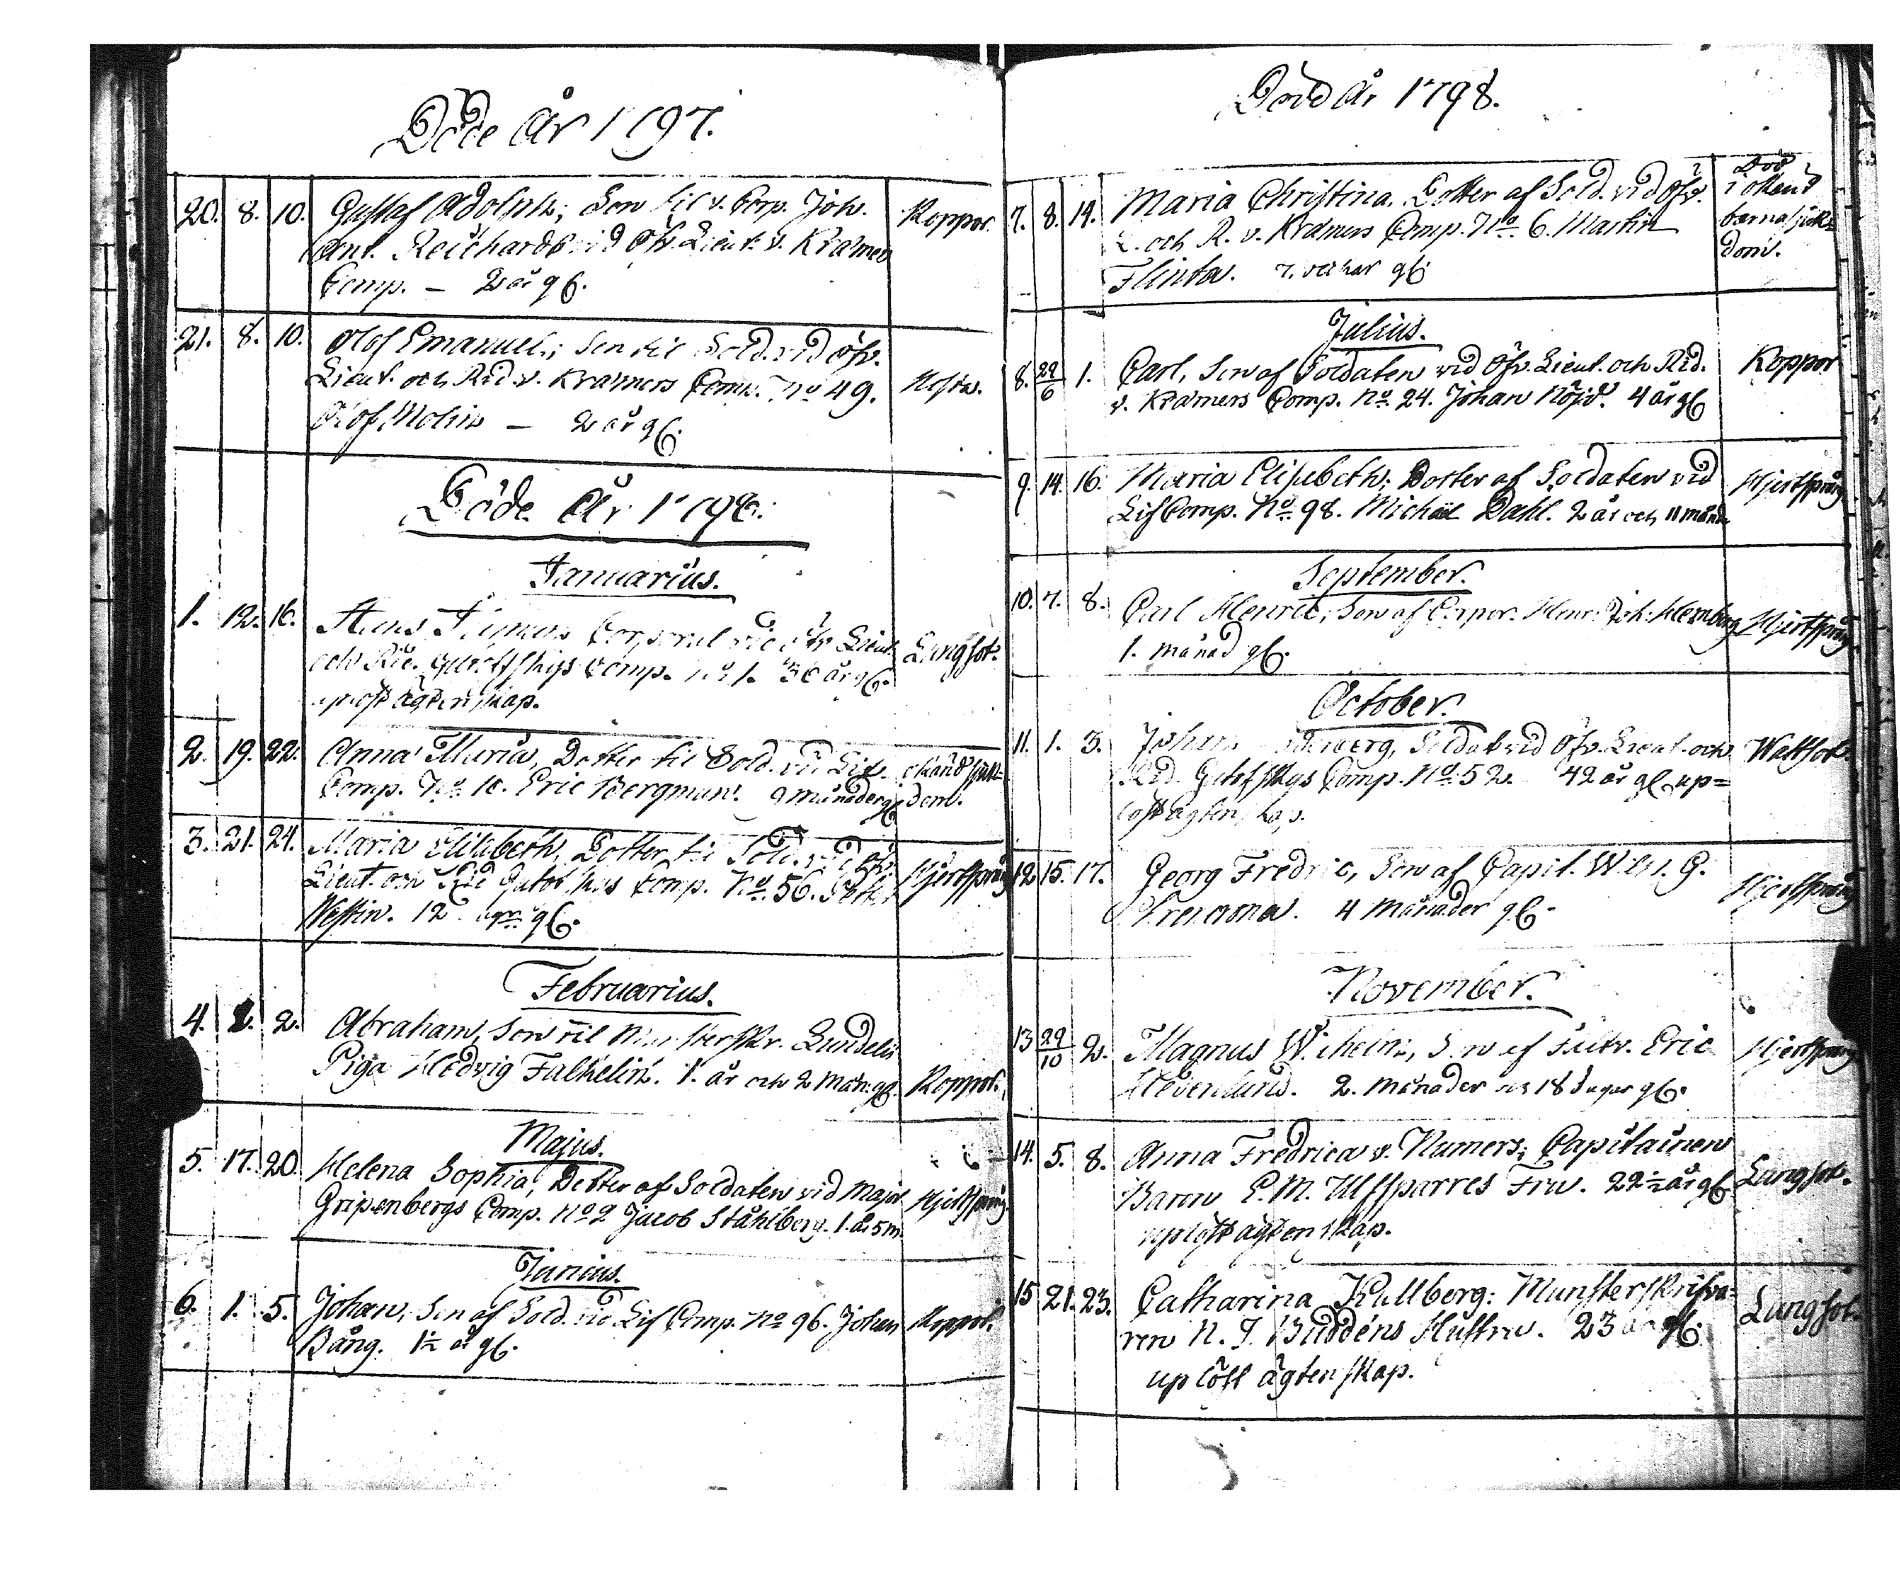 Döde år 1797.
20. 8. 10. Gustaf Adolph; Son til v. Corp. Joh.
Ant. Reichards vid Öfv. Lieut. v. Kræmers
Comp. — 2 år gl. Koppor.
21. 8. 10. Olof Emanuel; Son til Sold. vid Öfv.
Lieut. och Rid. v. Kræmers Comp. No 49.
Olof Molin — 2 år gl. Hosta.
Döde År 1798.
Januarius.
1. 12. 16. Corporal vid Öfv. Lieut.
och Rid. Comp. No 1. 36 år gl.
uplöst ägtenskap. Lungsot.
2. 19. 22. Anna Maria, Dotter til Sold. vid Lif
Comp. No 10. Eric Bergman. 9 månader gl. okänd sjuk-
dom.
3. 21. 24. Maria Elisabeth, Dotter til Sold. vid Öfv.
Lieut. och Rid. Comp. No. 56. Petter
Westin. 12 gl. Hjertsprång
Februarius.
4. 1. 2. Abraham, Son til Munsterskr. Lundelii
Piga Hedvig Falhelin. 1. år och 2 mån. gl. Koppor.
Majus.
5. 17. 20. Helena Sophia, Dotter af Soldaten vid Major
Gripenbergs Comp. No 2 Jacob Ståhlberg. 1. år 5 m. Hjertsprång
Junius.
6. 1. 5. Johan, Son af Sold. vid Lif Comp. No 96. Johan
Bång. 1½ år gl. Koppor.
Död År 1798.
7. 8. 14. Maria Christina, Dotter af Sold. vid Öfv.
L. och R. v. Kræmers Comp. No. 6. Martin
Flinta. 7. veckar gl. Död
i okänd
barnasjuk-
dom.
Julius.
8. 29/6 1. Carl, Son af Soldaten vid Öfv. Lieut. och Rid.
v. Kræmers Comp. No. 24. Johan Nöjd. 4 år gl. Koppor
9. 14. 16. Maria Elisabeth, Dotter af Soldaten vid
Lif Comp. No. 98. Michael Dahl. 2 år och 11 månd. Hjertsprång
September.
10. 7. 8. Carl Henric, Son af Corpor. Henr. Joh. Hernberg
1. månad gl. Hjertsprång
October.
11. 1. 3. Johan Soldat vid Öfv. Lieut. och
Rid. Comp. No. 52. 42 år gl. up=
löst ägtenskap. Wattsot.
12. 15. 17. Georg Fredric, Son af Capit. W. G.
4 månader gl. Hjertsprång
November.
13 29/10 2. Magnus Wilhelm, Son af Eric
2. månader och 18 dagar gl. Hjertsprång
14. 5. 8. Anna Fredrica v. Numers; Capitainen
Baron C. M. Ulfsparres Fru. 22½ år gl.
uplöst ägtenskap. Lungsot.
15 21. 23. Catharina Kullberg: Munsterskrifva=
ren N. J. Buddéns Hustru. 23 år gl.
uplöst ägtenskap. Lungsot.